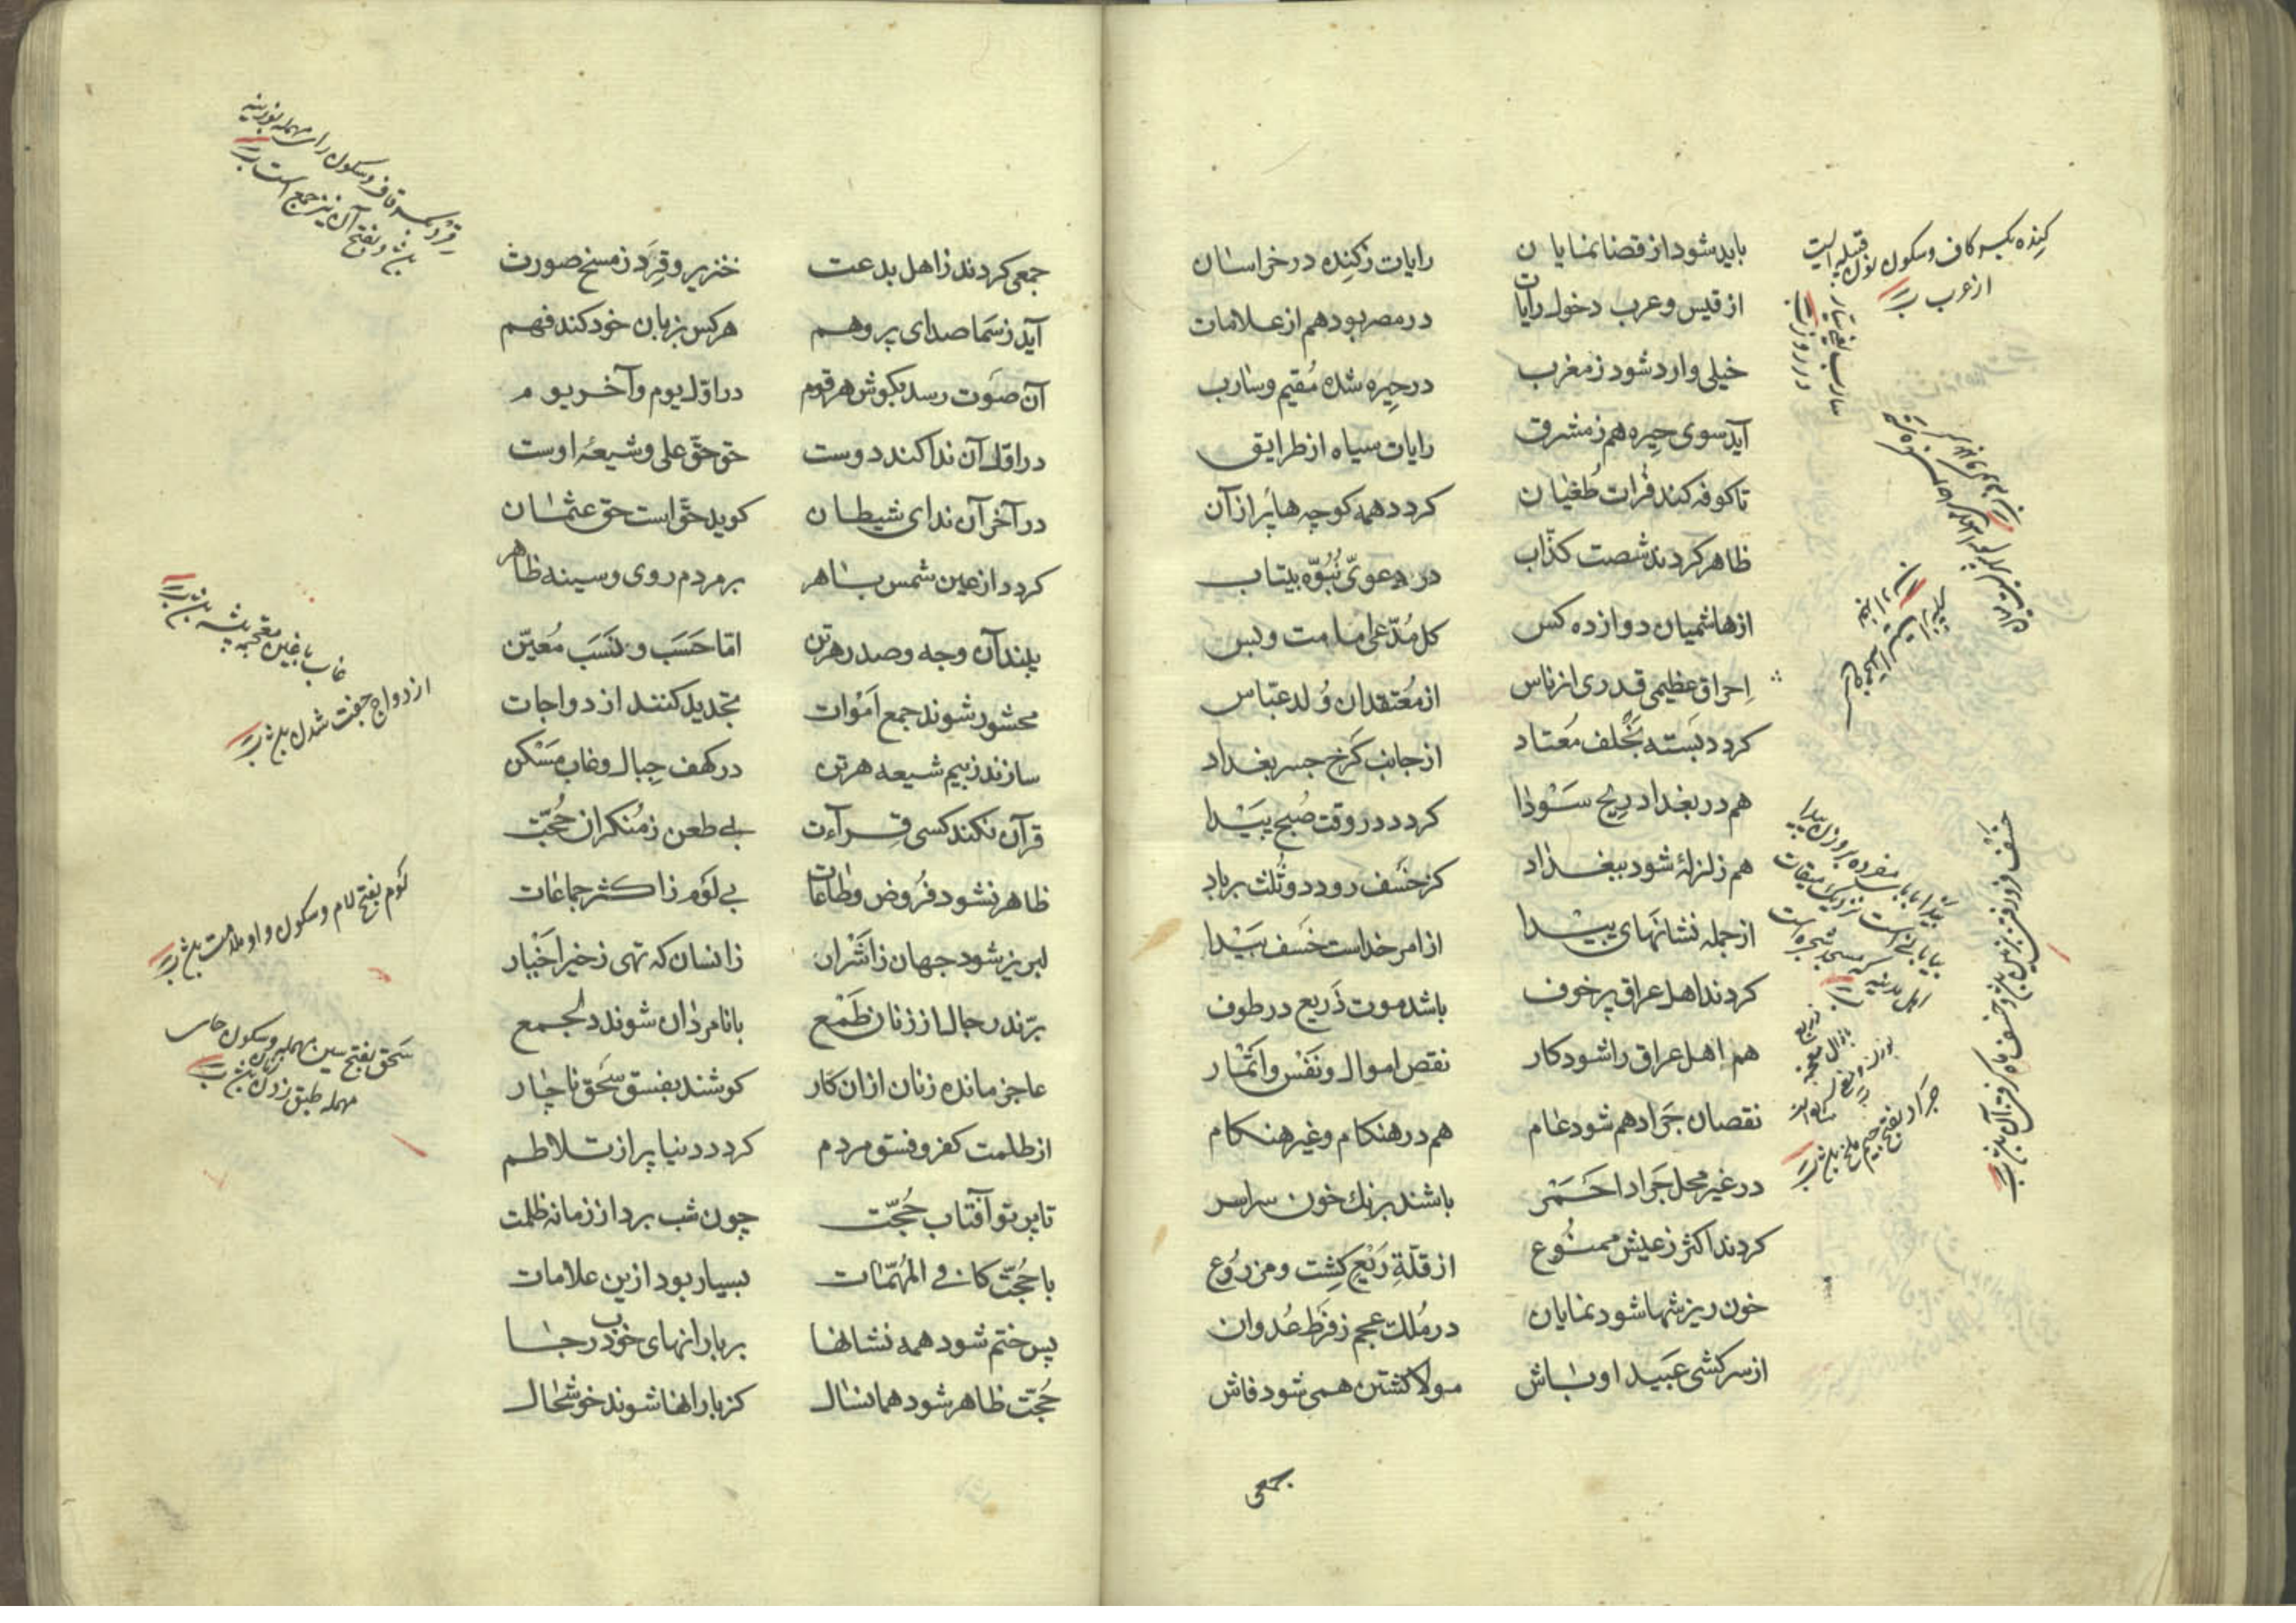 باید شود از قضا نمایان رایات زکِنده در خراسان
از قیس و عرب دخول رایات در مصر بود هم از علامات
خیلی وارد شود ز مغرب در حِیره شده مُقیم و سارب
آید سوی حِیره هم ز مشرق رایات سیاه از طرایق
تا کوفه کند فُرات طُغیان کردد همه کوچه ها پُر از آن
ظاهر کردند شصت کذّاب در دعویّ نُبُوّه بیتاب
از هاشمیان دوازده کس کل مُدّعی امامت و بس
اِحراق عظیمی قدری از ناس از مُعتقدان وُلد عبّاس
کردد بَسته بخُلف مُعتاد از جانب کَرخ جسر بغداد
هم در بغداد رِیح سَوْدا کردد در وقت صُبح پَیْدا
هم زلزلهٔ شود ببغداد کز خَسف رود دو ثُلث بر باد
از جمله نشانهای پیدا از امر خداست خَسف بَیْدا
کردند اهل عراق پر خوف باشد موت ذَریع در طوف
هم اهل عراق را شود کار نقص اموال و نَفْس و اَثمْار
نقصان جَراد هم شود عام هم در هنکام و غیر هنکام
در غیر محل جَراد احَمَر باشند برنك خون سراسر
کردند اکثر ز عیش ممنُوع از قلّةِ رَیْعِ کِشِت و مزرُوع
خون ریزشها شود نمایان در مُلك عجم ز فَرَطِ عُدوان
از سرکشی عَبید اوباش مولا کشتن همی شود فاش
جمعی
کِنده بکسر کاف و سکون نون قبیله ایست
از عرب
جَراد بفتح جیم ملخ باشد
جمعی کردند ز اهل بدعت خنزیر و قِرَد ز مسخ صورت
آید ز سَما صدای پر وهم هر کس بزبان خود کند فهم
آن صَوت رسد بکوش هر قوم در اوّل یوم و آخر یوم
در اوّل آن ندا کند دوست حق حقّ علی و شیعهٔ اوست
در آخر آن ندای شیطان کوید حقّ است حق عثمان
کردد از عین شمس باهر بر مردم روی و سینه ظاهر
بیند آن وجه و صدر هر تن امّا حَسَب و نَسَب مُعیّن
محشور شوند جمع اَمْوات تجدید کنند ازدواجات
سازند ز بیم شیعه هر تن در کهف جِبال و غاب مَسْکن
قرآن نکند کسی قِرآءت بی طعن ز مُنکران حُجّت
ظاهر نشود فُروض و طاعات بی لَوْم ز اکثر جماعات
لبریز شود جهان ز اَشْرار ز انسان که تهی ز خیر اَخْیار
بّرند رجال از زنان طَمْع با نامردان شوند در جمع
عاجز مانده زنان از ان کار کوشند بفسق سَحق ناچار
از ظلمت کفر و فسق مردم کردد دنیا پر از تلاطم
تا پرتو آفتاب حُجّت چون شب برد از زمانه ظلمت
با حُجّت کافی المُهمّات بسیار بود ازین علامات
پس ختم شود همه نشانها بر بارانهای خوب در جا
حُجّت ظاهر شود همانسال کز بارانها شوند خوشحال
قِرَد بکسر قاف و سکون رای مهمله بوزینه
غاب با غین معجمه بیشه باشد
ازدواج جفت شدن باشد
لَوْم بفتح لام و سکون واو ملامت باشد
سَحق بفتح سین مهمله و سکون حای
مهمله طبق زدن زنان باشد